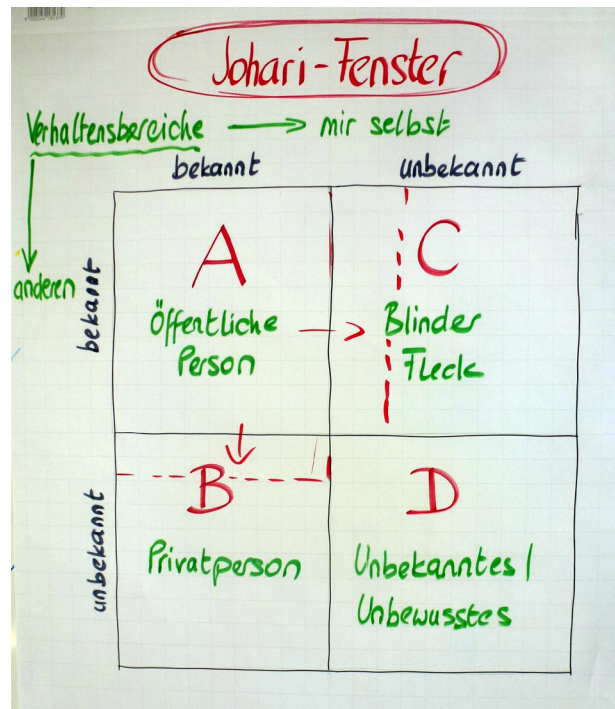 Johari-Fenster
Verhaltensbereiche → mir selbst
bekannt unbekannt
anderen
bekannt
A
Öffentliche → Person
C
Blinder
Fleck
unbekannt
B
Privatperson
D
Unbekanntes /
Unbewusstes